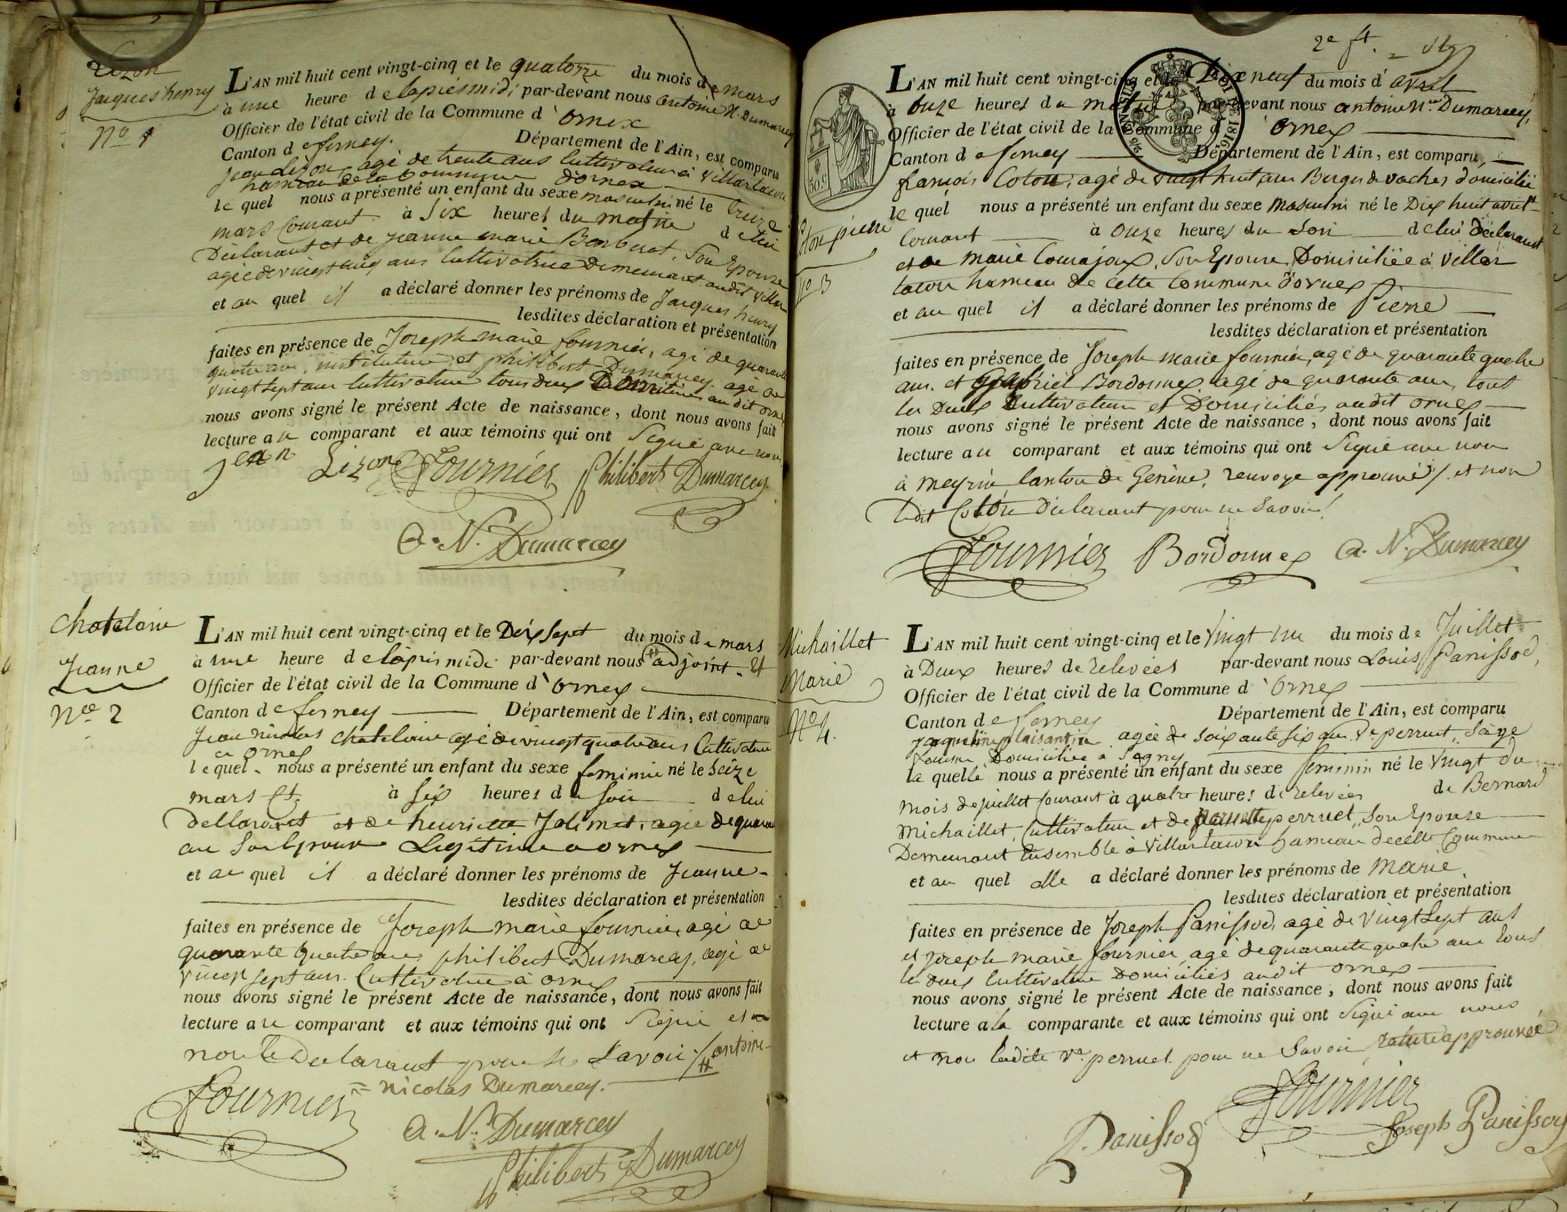 Lizon
Jacques henry
No 1
L'AN mil huit cent vingt-cinq et le quatorze du mois de mars
à une heure de lapresmidi par-devant nous antoine N. Dumarcey
Officier de l'état civil de la Commune d'ornex
Canton de ferney. Département de l'Ain, est comparu
jean Lizon, agé de trente ans Cultivateur à Villard tacon
hameau de la Commune d'ornex
le quel nous a présenté un enfant du sexe masculin né le treize
mars Courant à Six heures du matin de lui
Déclarant et de jeanne marie Son Epouse
agée de vingt cinq ans Cultivatrice Demeurant audit Villar
et au quel il a déclaré donner les prénoms de Jacques henry
lesdites déclaration et présentation
faites en présence de Joseph marie fournier, agé de quarante
quatre ans, instituteur et philibert Dumarcey agé de
vingt Sept ans Cultivateur tous deux Domiciliés audit ornex
nous avons signé le présent Acte de naissance, dont nous avons fait
lecture au comparant et aux témoins qui ont Signé avec nous
jean Lizon Fournier Philibert Dumarcey
A. N. Dumarcey
Chatelain
Jeanne
No 2
L'AN mil huit cent vingt-cinq et le Dix Sept du mois de mars
à une heure de lapris midi par-devant nous adjoint et
Officier de l'état civil de la Commune d'ornex
Canton de ferney Département de l'Ain, est comparu
Jean nicolas chatelain agé de vingt quatre ans Cultivateur
a ornex
le quel nous a présenté un enfant du sexe feminin né le Seize
mars à Six heures du Soir de lui
declarant et de henriette Jolimet, agée de quarante
ans Son Epouse Legitime a ornex
et au quel il a déclaré donner les prénoms de Jeanne
lesdites déclaration et présentation
faites en présence de Joseph marie fournier, agé de
quarante quatre ans philibert Dumarcey, agé de
vingt Sept ans, Cultivateur à ornex
nous avons signé le présent Acte de naissance, dont nous avons fait
lecture au comparant et aux témoins qui ont Signé et
non le Declarant pour ne Savoir. antoine
= nicolas Dumarcey.
Fournier
A. N. Dumarcey
Philibert Dumarcey
2e ft.
Coton pierre
No 3
L'AN mil huit cent vingt-cinq et le Dix neuf du mois d'avril
à onze heures du matin par-devant nous antoine Nas Dumarcey,
Officier de l'état civil de la Commune d'ornex
Canton de ferney Département de l'Ain, est comparu,
francois Coton, agé de vingt huit ans Berger de vaches domicilié
le quel nous a présenté un enfant du sexe masculin né le Dix huit avril
Courant à onze heures du Soir de lui déclarant
et de marie Courajoux, Son Epouse, Domiciliée à Villar
tacon hameau de Cette Commune d'ornex
et au quel il a déclaré donner les prénoms de Pierre
lesdites déclaration et présentation
faites en présence de Joseph marie fournier, agé de quarante quatre
ans. et gabriel Bordonnex, agé de quarante ans, tout
les Deux Cultivateurs et Domiciliés audit ornex
nous avons signé le présent Acte de naissance, dont nous avons fait
lecture au comparant et aux témoins qui ont Signé avec nous
à meyrin Canton de Genève, renvoye approuvé /. et non
Ledit Coton Déclarant pour ne Savoir
Fournier Bordonnex A. N. Dumarcey
Michaillet
Marie
No 4.
L'AN mil huit cent vingt-cinq et le vingt un du mois de Juillet
à Deux heures de relevées par-devant nous Louis Panissod,
Officier de l'état civil de la Commune d'ornex
Canton de ferney Département de l'Ain, est comparu
jaqueline plaisantin agée de Soixante Six ans Ve perruet, Sage
femme, Domiciliée à Segny
la quelle nous a présenté un enfant du sexe feminin né le vingt du
mois de juillet Courant à quatre heures de relevées de Bernard
Michaillet Cultivateur et de perruet, Son Epouse
Demeurant Ensemble à Villar tacon hameau de cette Commune
et au quel elle a déclaré donner les prénoms de Marie,
lesdites déclaration et présentation
faites en présence de Joseph Panissod, agé de vingt Sept ans
et joseph marie fournier agé de quarante quatre ans tous
les deux Cultivateurs Domiciliés audit ornex
nous avons signé le présent Acte de naissance, dont nous avons fait
lecture a la comparante et aux témoins qui ont Signé avec nous
et non ladite Ve perruet pour ne Savoir, rature approuvée
Fournier
Panissod Joseph Panissod